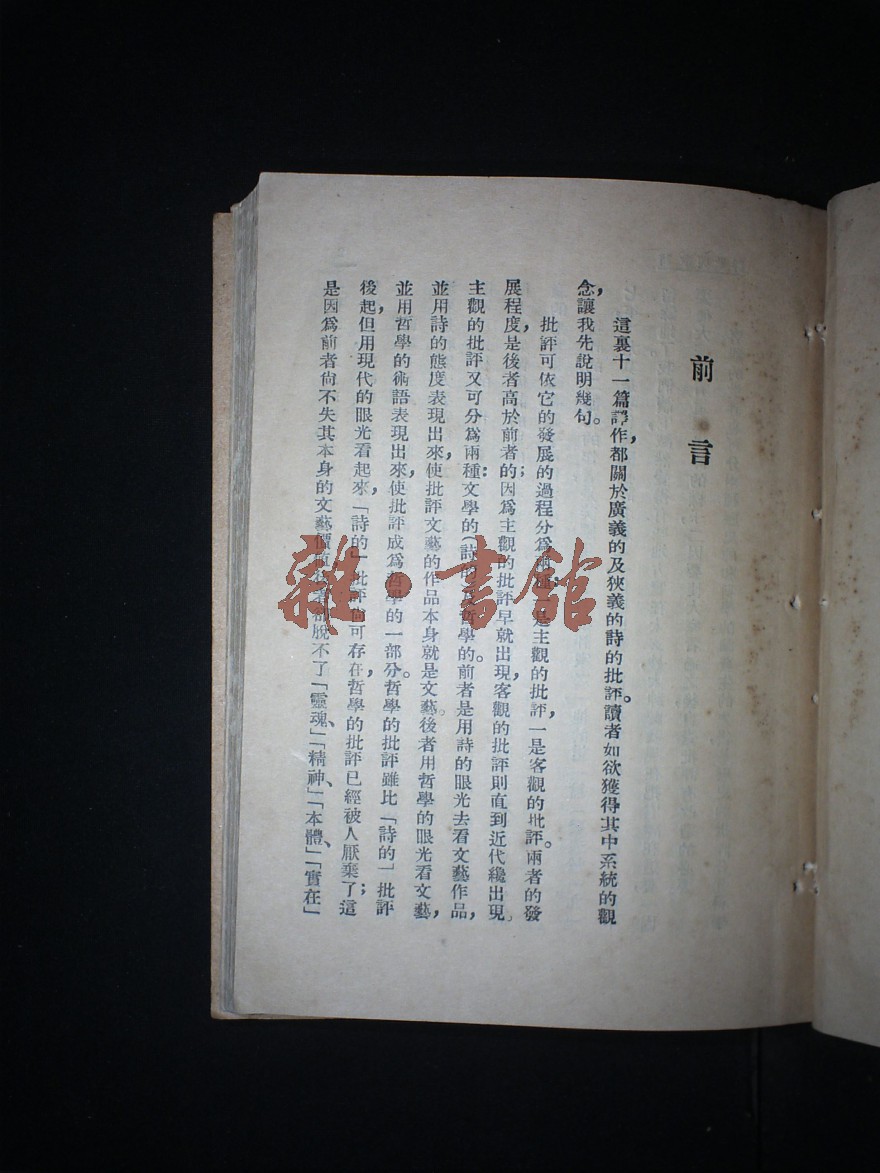 前言
這裏十一篇譯作,都關於廣義的及狹義的詩的批評。讀者如欲獲得其中系統的觀
念,讓我先說明幾句。
批評可依它的發展的過程分爲兩是主觀的批評,一是客觀的批評。兩者的發
展程度,是後者高於前者的;因爲主觀的批評早就出現,客觀的批評則直到近代纔出現。
主觀的批評又可分爲兩種:文學的(詩的哲學的。前者是用詩的眼光去看文藝作品,
並用詩的態度表現出來,使批評文藝的作品本身就是文藝。後者用哲學的眼光看文藝,
並用哲學的術語表現出來,使批評成爲哲學的一部分。哲學的批評雖比「詩的」批評
後起,但用現代的眼光看起來,「詩的」批評尙可存在,哲學的批評已經被人厭棄了;這
是因爲前者尙不失其本身的文藝價値,後者脫不了「靈魂」、「精神」、「本體」、「實在」
雜·書館